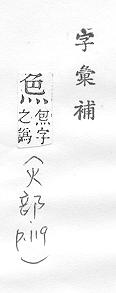 字彙補
字
之譌
(火部.p.119)